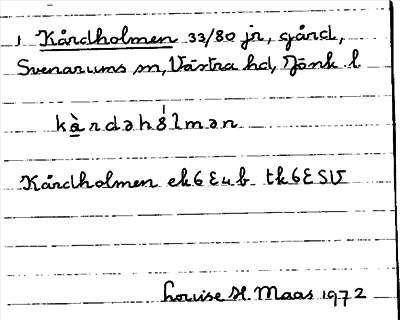 1 Kårdholmen 33/80 jr, gård,
Svenarums sn, Västra hd, Jönk. l.
Kårdholmen ek 6 E 4 b tk 6 E SV
Louise H. Maas 1972